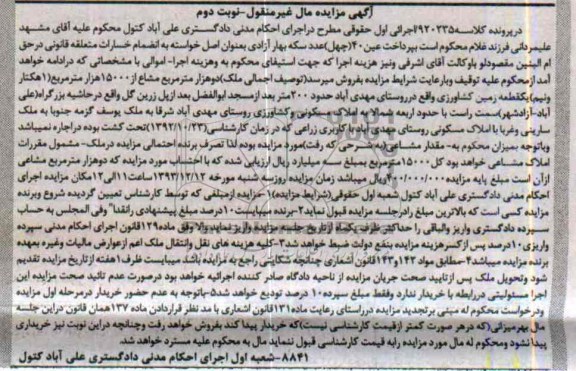 آگهی مزایده مال غیرمنقول-نوبت دوم
درپرونده کلاسه۹۲۰۳۳۵/اجرائی اول حقوقی مطرح دراجرای احکام مدنی دادگستری علی آباد کتول محکوم علیه آقای مشهد
علیمردانی فرزند غلام محکوم است بپرداخت عین ۴۰(چهل)عدد سکه بهار آزادی بعنوان اصل خواسته به انضمام خسارات متعلقه قانونی درحق
ام البنین مقصودلو باوکالت آقای اشرفی ونیز هزینه اجرا که جهت استیفای محکوم به وهزینه اجرا- اموالی با مشخصاتی که درادامه خواهد
آمد ازمحکوم علیه توقیف وبارعایت شرایط مزایده بفروش میرسد(توصیف اجمالی ملک)دوهزار مترمربع مشاع از۱۵۰۰۰هزار مترمربع(۱هکتار
ونیم)یکقطعه زمین کشاورزی واقع درروستای مهدی آباد حدود ۳۰۰متر بعد ازمسجد ابوالفضل بعد ازپل زرین گل واقع درحاشیه بزرگراه(علی
آباد-آزادشهر)سمت راست با حدود اربعه سکونی وکشاورزی روستای مهدی آباد شرقا به ملک یوسف گزمه جنوبا به ملک
سارینی وغربا با املاک مسکونی روستای مهدی آباد با کاربری زراعی که در زمان کارشناسی(۱۳۹۳/۱۰/۲۳)تحت کشت بوده دراجاره نمیباشد
وباتوجه بمیزان محکوم به- مقدار مشاعی (به شرحی که رفت)مورد مزایده بوده لذا تصرف برنده احتمالی مزایده درملک- مشمول مقررات
املاک مشاعی خواهد بود کل۱۵۰۰۰مترمربع بمبلغ سه میلیارد ریال ارزیابی شده که با احتساب مورد مزایده که دوهزار مترمربع مشاعی
ازآن است مبلغ پایه مزایده۴۰۰/۰۰۰/۰۰۰ریال میباشد زمان برگزاری مزایده روز سه شنبه مورخه ۱۳۹۳/۱۲/۱۲ ساعت۱۱الی۱۲مکان مزایده اجرای
احکام مدنی دادگستری علی آباد کتول شعبه اول حقوقی(شرایط مزایده)۱-مزایده ازمبلغی که توسط کارشناس تعیین گردیده شروع وبرنده
مزایده کسی است که بالاترین مبلغ رادرجلسه مزایده قبول نماید۲-برنده میبایست۱۰درصد مبلغ پیشنهادی رانقدا" وفی المجلس به حساب
سپرده دادگستری واریز والباقی را حداکثر ظرف یکماه ازتاریخ جلسه مزایده واریزنماید والا وفق ماده۱۲۹قانون اجرای احکام مدنی سپرده
واریزی۱۰درصد پس ازکسرهزینه مزایده بنفع دولت ضبط خواهد شد۳-کلیه هزینه های نقل وانتقال ملک اعم ازعوارض مالیات وغیره بعهده
برنده مزایده میباشد۴-مطابق مواد ۱۴۲و۱۴۳قانون اشعاری چنانچه شکایتی راجع به مزایده باشد میبایست ظرف۱هفته ازتاریخ مزایده تقدیم
شود وتحویل ملک پس ازتایید صحت جریان مزایده از ناحیه دادگاه صادر کننده اجرائیه خواهد بود درصورت عدم تائید صحت مزایده این
اجرا مسئولیتی دررابطه با خریدار ندارد وفقط مبلغ سپرده۱۰درصد تودیع خواهد شد۵-باتوجه به عدم حضور خریدار درمرحله اول مزایده
ودرخواست محکوم له مبنی برتجدید مزایده درراستای رعایت ماده۱۳۱قانون اشعاری با مد نظر قراردادن ماده ۱۳۷همان قانون دراین جلسه
مال بهرمیزانی(که درهر صورت کمتر ازقیمت کارشناسی نیست)که خریدار پیدا کند بفروش خواهد رفت وچنانچه دراین نوبت نیز خریداری
پیدا نشود ومحکوم له مال مورد مزایده رابه قیمت کارشناسی قبول ننماید مال به محکوم علیه مسترد خواهد شد.
۸۸۴۱-شعبه اول اجرای احکام مدنی دادگستری علی آباد کتول